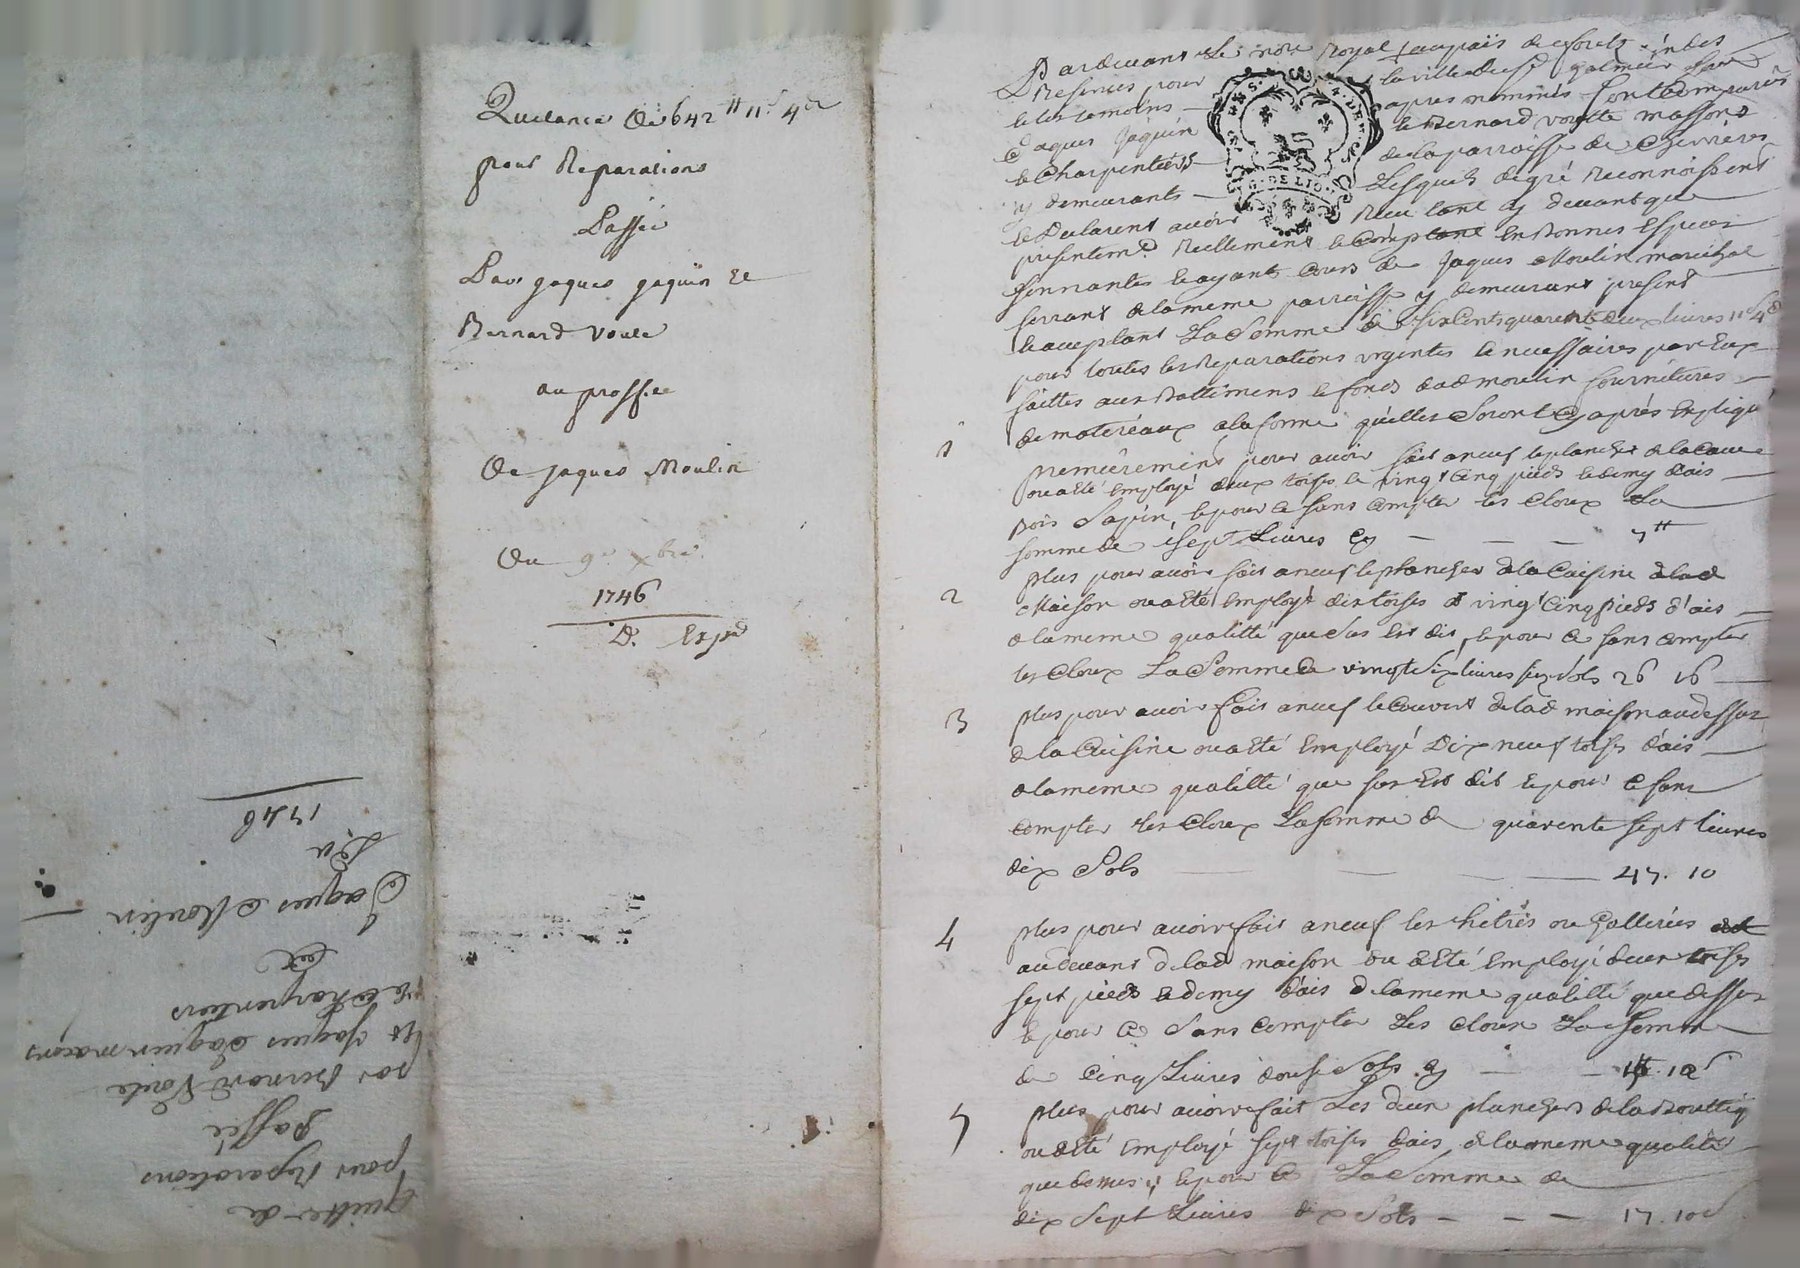 Quittance de 642tt 11s 4d
pour Reparations
Passée
Par jaques jaquin et
Bernard Voute
au proffit
De jaques Moulin
Du 9e xbre
1746
D. Expd
quitter de
pour Reparations
Passée
par Bernard Voute
et Jaques Jaquin macons
& charpentiers
a
Jaques Moulin
Du
1746
Pardevant Le nore Royal au païs de forest
Resinies pour la ville de st galmier
et les temoins apres nommés sont Comparus
Jaques Jaquin et Bernard voutte massons
et Charpentiers de la parroisse de Chevrieres
y demeurants Lesquels de gré Reconnoissent
et Declarent avoir Receu tant cy devant que
presentemt Reellement et Comptant En Bonnes Especes
sonnantes et ayant Cours de Jaques Moulin marechal
ferrant de la meme parroisse y demeurant present
et acceptant La Somme de six Cents quarente deux livres 11s 4d
pour toutes les Reparations urgentes et necessaires par Eux
faittes aux Battimens et fonds dud moulin fournitures
de materéaux a la forme quelles Seront Cy aprés Expliqué
1 premierement pour avoir fait a neuf le plancher de la Cave
ou a Eté Employé deux toises et vingt Cinq pieds et demy d'ais
bois Sapin, et pour Ce sans Compter les Cloux La
somme de Sept Livres Cy — — — 7tt
2 plus pour avoir fait a neuf le plancher de la Cuisine de lad
Maison ou a Eté Employé dix toises et vingt Cinq pieds d'ais
de la meme qualitté que Sus Est dit, et pour Ce sans Compter
les Cloux La Somme De vingt Six livres seize Sols 26 16
3 plus pour avoir fait a neuf le Couvert de lad maison au dessus
de la Cuisine ou a Eté Employé Dix neuf toises d'ais
de la meme qualitté que sus Est dit et pour Ce sans
Compter les Cloux La somme de quarente sept livres
dix Sols — — — 47. 10
4 plus pour avoir fait a neuf les hetrés ou Galleries
au devant de lad maison ou a Eté Employé deux toises
sept pieds et demy d'ais de la meme qualitté que dessus
et pour Ce Sans Compter Les Cloux La Somme
de Cinq Livres douse Sols Cy — — 5tt. 12s
5 plus pour avoir fait Les deux planchers de la Bouttiq
ou a Eté Employé sept toises d'ais de la meme qualitté
que dessus, et pour Ce La Somme de
dix Sept Livres dix Sols — — — 17. 10s